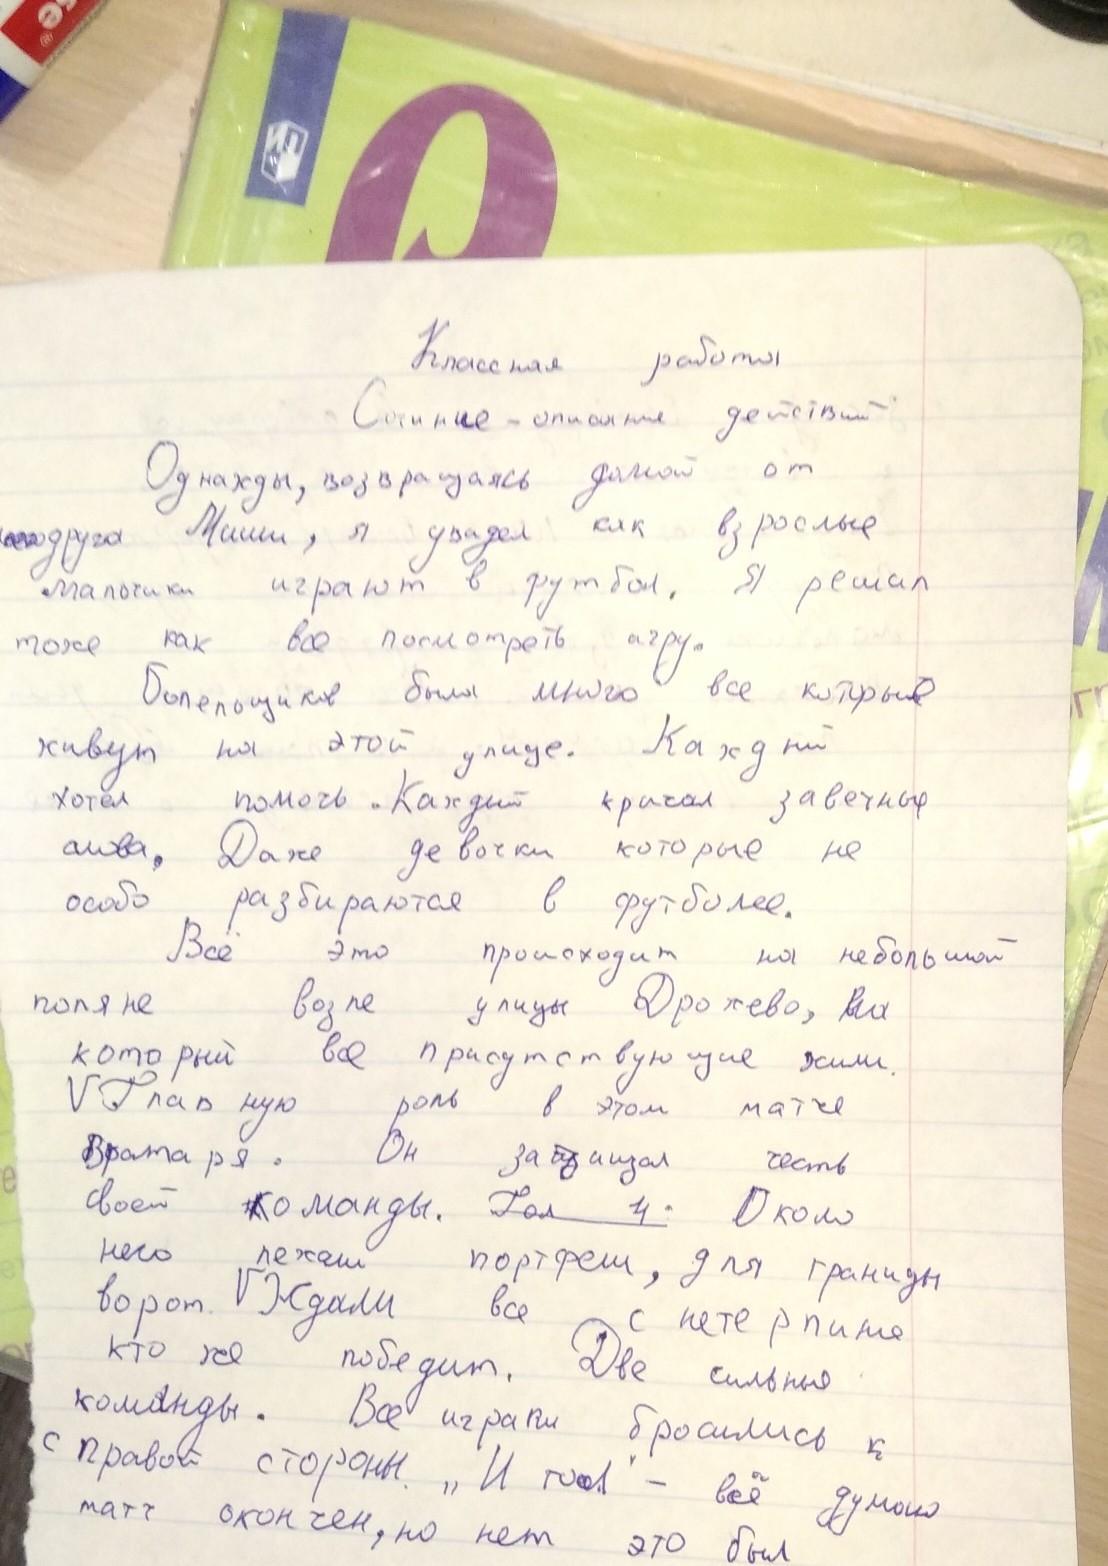 Классная работа
Сочиние-описание действий
Однажды, возвращаясь домой от
друга Миши, я увадел как взрослые
мальчики играют в футбол. Я решал
тоже как все посмотреть игру.
Болельщиков была много все которые
живут на этой улице. Каждий
хотел помочь. Каждый кричал заветные
слова. Даже девочки которые не
особо разбираются в футболе.
Всё это происходит на небольшой
поляне возле улицы Дрожево, на
который все присутствующие жили.
V Главную роль в этом матче
Вратаря. Он защищал честь
своей команды. Гол 4: Около
него лежали портфели, для граници
ворот. V Ждали все с нетерпние
кто же победит. Две сильные
команды. Все играки бросились к
с правой стороны. „И гол" – всё думало
матч окончен, но нет это был